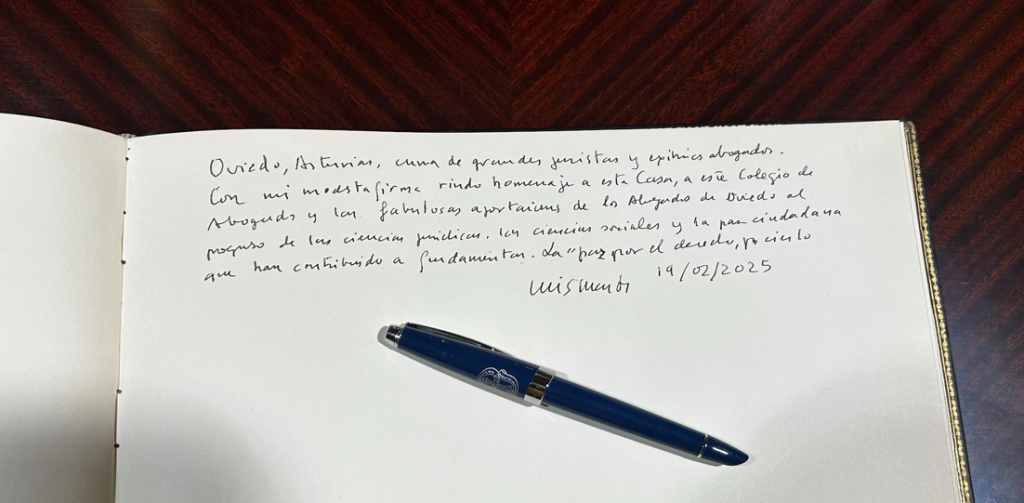 Oviedo, Asturias, cuna de grandes juristas y eximios abogados.
Con mi modesta firma rindo homenaje a esta Casa, a este Colegio de
Abogados y las fabulosas aportaciones de los Abogados de Oviedo al
progreso de las ciencias jurídicas, las ciencias sociales y la paz ciudadana
que han contribuido a fundamentar. La "paz por el derecho, por cierto
19/02/2025